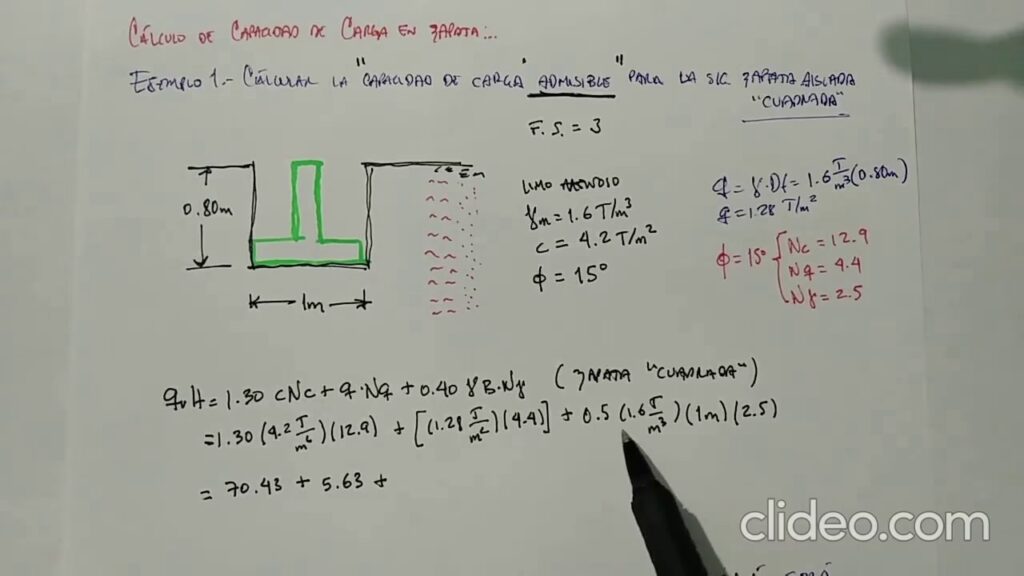 CÁLCULO DE CAPACIDAD DE CARGA EN ZAPATA...
EJEMPLO 1.- CÁLCULAR LA "CAPACIDAD DE CARGA ADMISIBLE" PARA LA SIG. ZAPATA AISLADA
"CUADRADA"
F.S. = 3
0.80m
1m
LIMO
γm = 1.6 T/m³
c = 4.2 T/m²
φ = 15°
q = γ·Df = 1.6 T/m³ (0.80m)
q = 1.28 T/m²
φ = 15° { Nc = 12.9
Nq = 4.4
Nγ = 2.5
qult = 1.30 cNc + q·Nq + 0.40 γ B·Nγ (ZAPATA "CUADRADA")
= 1.30 (4.2 T/m²) (12.9) + [(1.28 T/m²) (4.4)] + 0.5 (1.6 T/m³) (1m) (2.5)
= 70.43 + 5.63 +
clideo.com